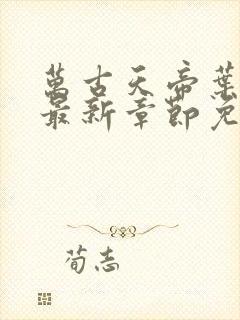 萬古天帝葉
最新章節免
荀志